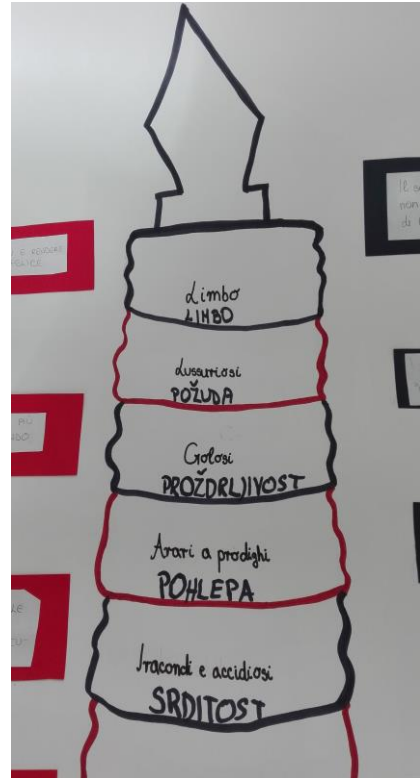 Limbo
LIMBO
Lussuriosi
POŽUDA
Golosi
PROŽDRLJIVOST
Avari a prodighi
POHLEPA
Iracondi e accidiosi
SRDITOST
E RENDERE
Il
non
di